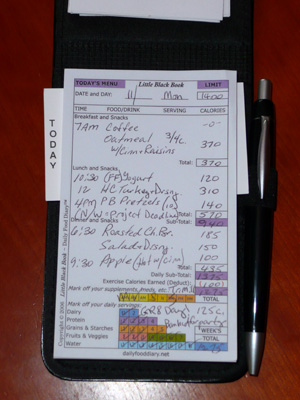 TODAY'S MENU Little Black Book LIMIT
DATE and DAY: 11/ Mon 1400
TIME FOOD/DRINK SERVING CALORIES
Breakfast and Snacks
7AM Coffee -0-
Oatmeal 3/4c 370
w/cinn+Raisins
Total: 370
TODAY
Lunch and Snacks
10:30 (FF) Yogurt 120
12 HC Turkey+Drsng 310
4pm PB Pretzels (10) 140
(N/W=Project Deadline) Total: 570
Dinner and Snacks Sub-Total: 940
6:30 Roasted Ch. Br. 185
Salad+Drsng. 150
9:30 Apple (Hot w/cinn) 100
Total: 435
Daily Sub-Total: 1375
Exercise Calories Earned (Deduct): (100)
Mark off your supplements, meds, etc. 1275
Mark off your daily servings: TOTAL
Dairy (GR8 Day!) 125c.
Protein
Grains & Starches WEEK'S
Fruits & Veggies TOTAL
Water
dailyfooddiary.net
Copyright © 2006 Little Black Book ~ Daily Food Diary™